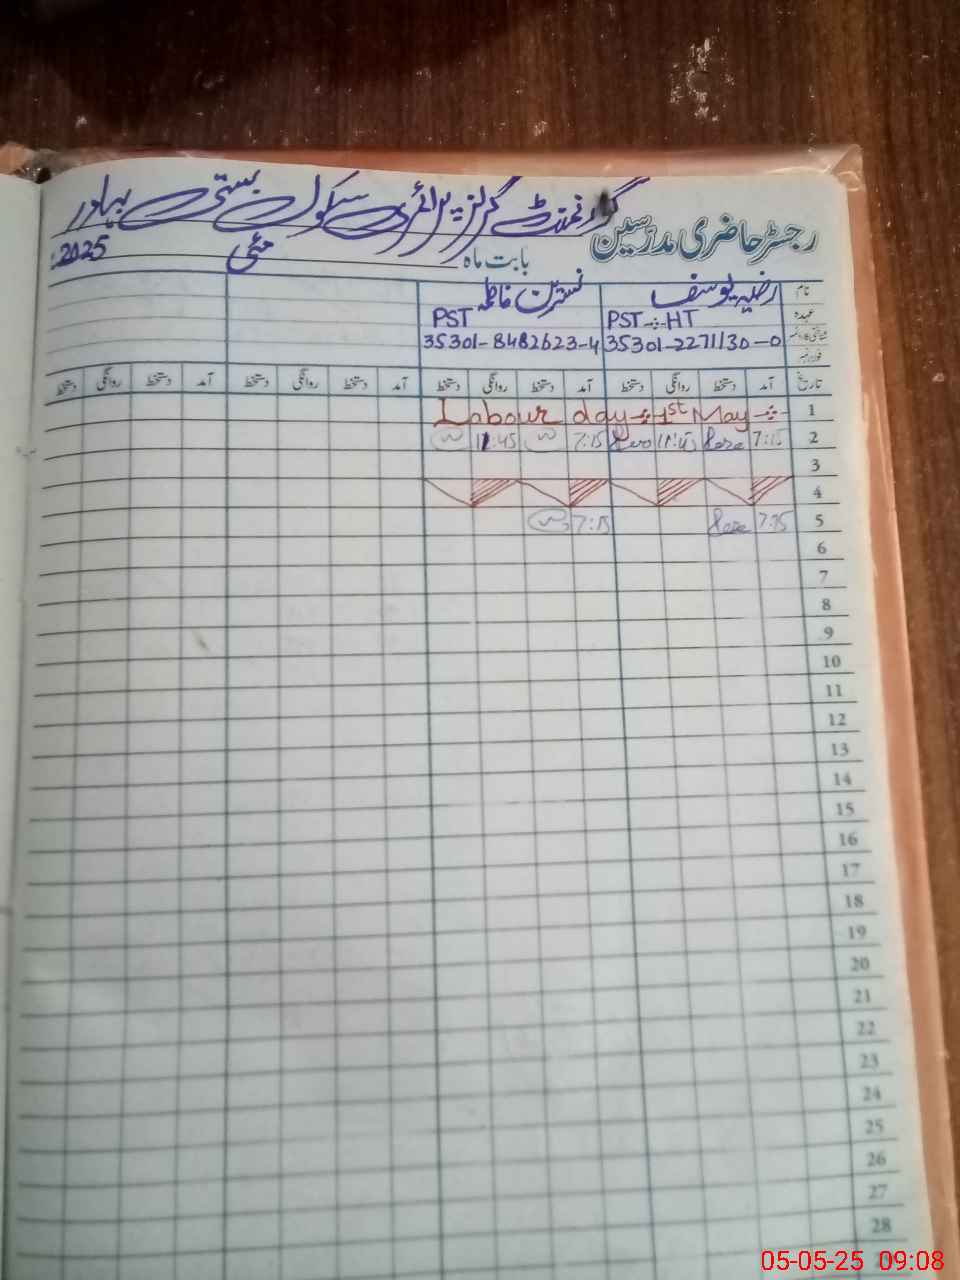 گورنمنٹ گرلز پرائمری سکول بستی بہادر
رجسٹر حاضری مدرسین
بابت ماہ مئی 2025ء
نام رضیہ یوسف نسترن فاطمہ
عہدہ PST-HT PST
شناختی کارڈ نمبر 35301-2271130-0 35301-8482623-4
تاریخ آمد دستخط روانگی دستخط آمد دستخط روانگی دستخط آمد دستخط روانگی دستخط آمد دستخط روانگی دستخط
1 Labour day 1st May
2 7:15 11:45 7:15 11:45
3
4
5 7:15 7:15
6
7
8
9
10
11
12
13
14
15
16
17
18
19
20
21
22
23
24
25
26
27
28
05-05-25 09:08